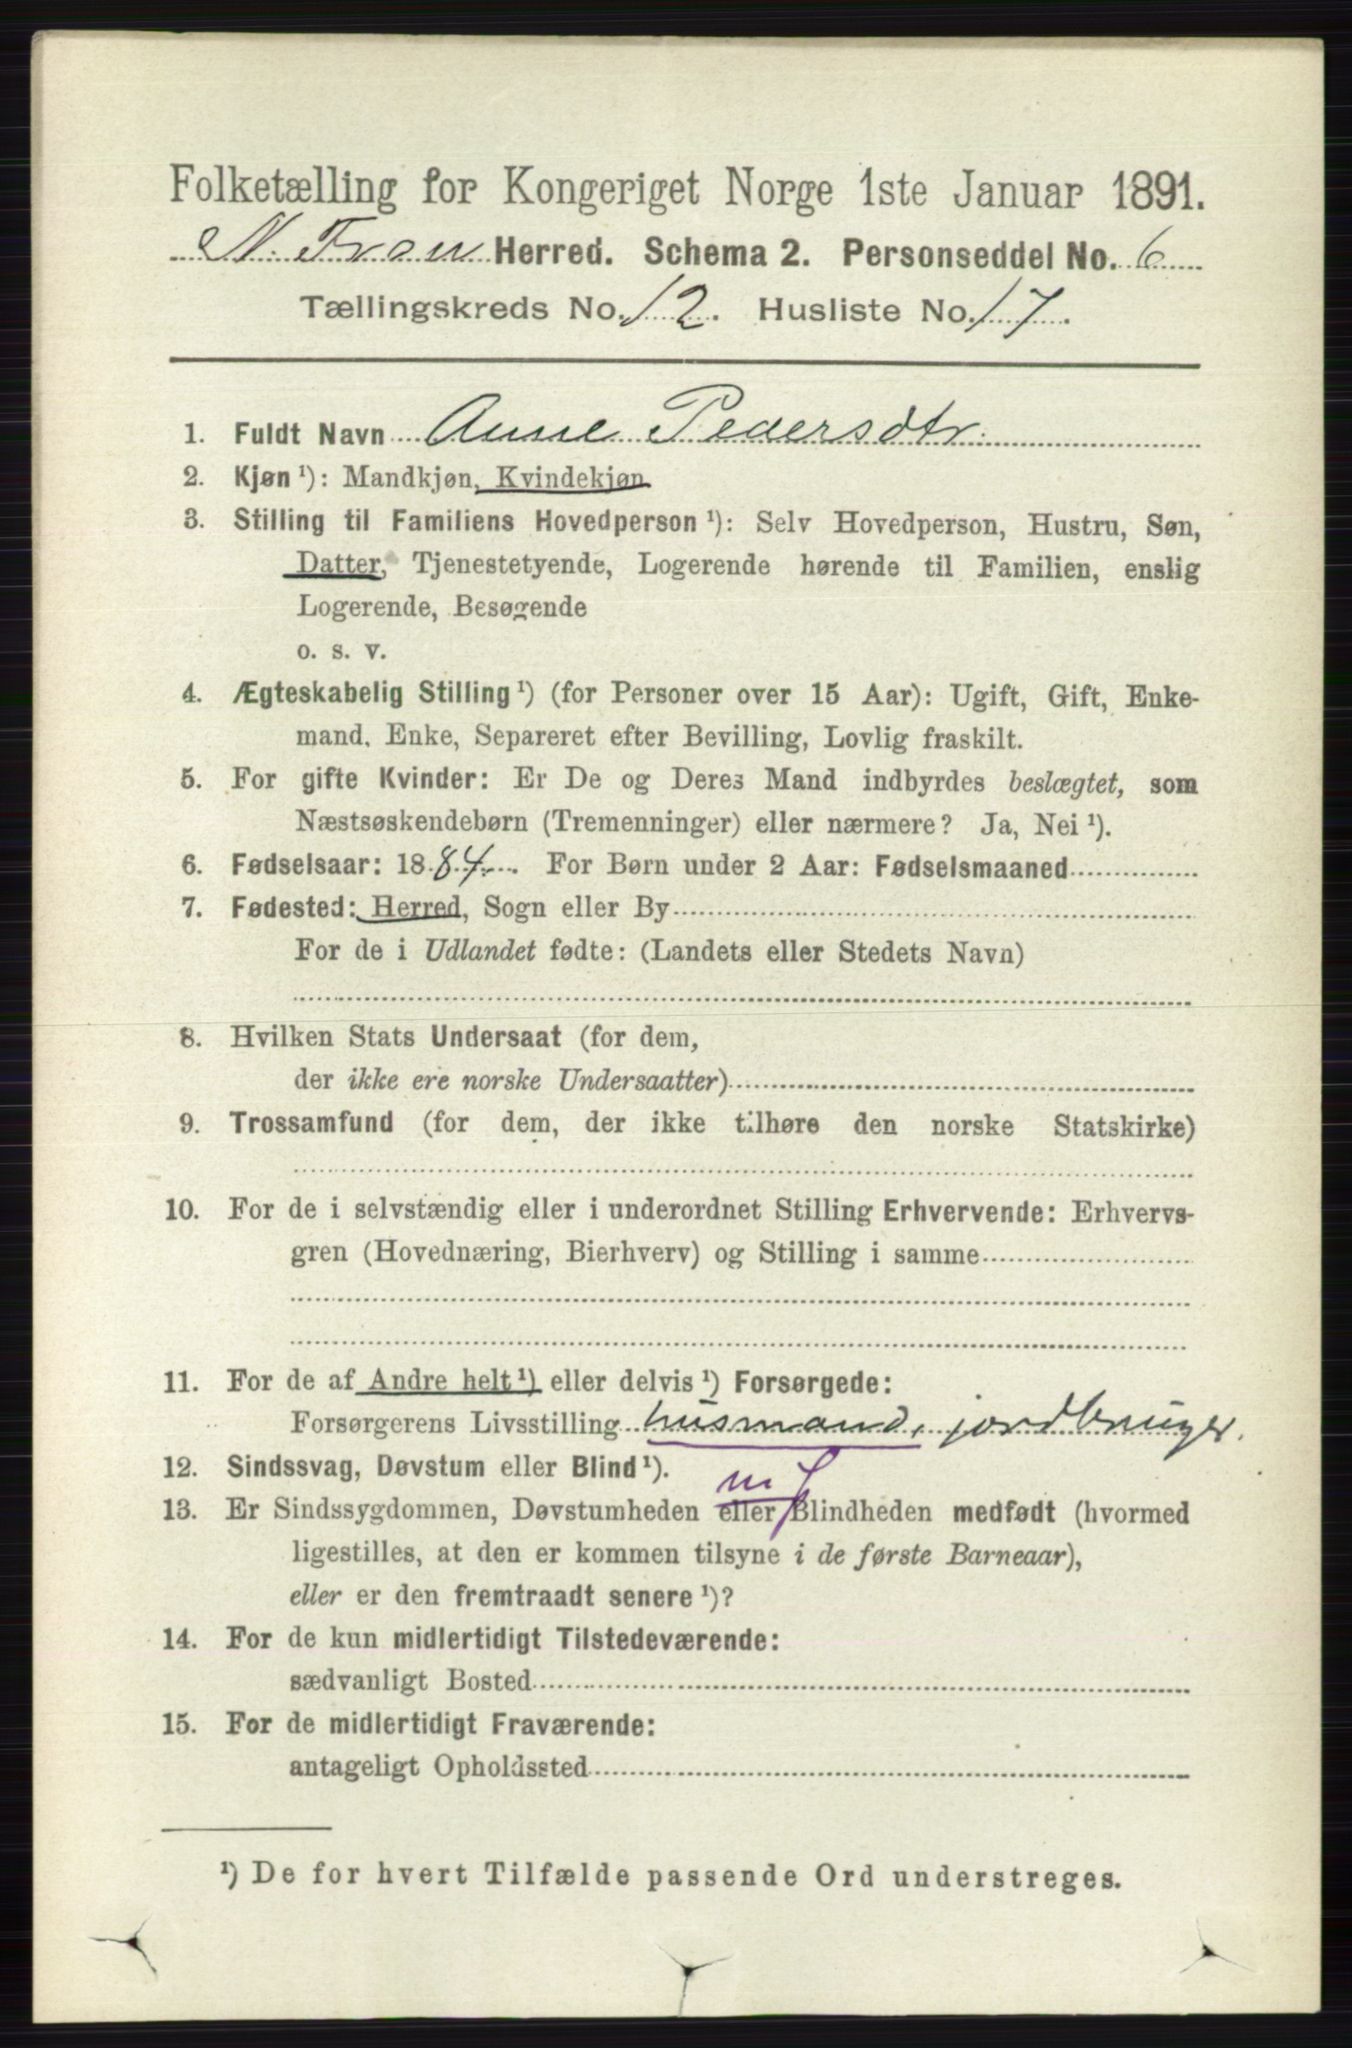 Folketælling for Kongeriget Norge 1ste Januar 1891.
N. Fron Herred. Schema 2. Personseddel No. 6
Tællingskreds No. 12. Husliste No. 17.
1. Fuldt Navn Anne Pedersdtr.
2. Kjøn ¹): Mandkjøn, Kvindekjøn
3. Stilling til Familiens Hovedperson ¹): Selv Hovedperson, Hustru, Søn,
Datter, Tjenestetyende, Logerende hørende til Familien, enslig
Logerende, Besøgende
o. s. v.
4. Ægteskabelig Stilling ¹) (for Personer over 15 Aar): Ugift, Gift, Enke-
mand, Enke, Separeret efter Bevilling, Lovlig fraskilt.
5. For gifte Kvinder: Er De og Deres Mand indbyrdes beslægtet, som
Næstsøskendebørn (Tremenninger) eller nærmere? Ja, Nei ¹).
6. Fødselsaar: 1884. For Børn under 2 Aar: Fødselsmaaned
7. Fødested: Herred, Sogn eller By
For de i Udlandet fødte: (Landets eller Stedets Navn)
8. Hvilken Stats Undersaat (for dem,
der ikke ere norske Undersaatter)
9. Trossamfund (for dem, der ikke tilhøre den norske Statskirke)
10. For de i selvstændig eller i underordnet Stilling Erhvervende: Erhvervs-
gren (Hovednæring, Bierhverv) og Stilling i samme
11. For de af Andre helt ¹) eller delvis ¹) Forsørgede:
Forsørgerens Livsstilling husmand, jordbruger.
12. Sindssvag, Døvstum eller Blind ¹).
13. Er Sindssygdommen, Døvstumheden eller Blindheden medfødt (hvormed
ligestilles, at den er kommen tilsyne i de første Barneaar),
eller er den fremtraadt senere ¹)?
14. For de kun midlertidigt Tilstedeværende:
sædvanligt Bosted
15. For de midlertidigt Fraværende:
antageligt Opholdssted
¹) De for hvert Tilfælde passende Ord understreges.